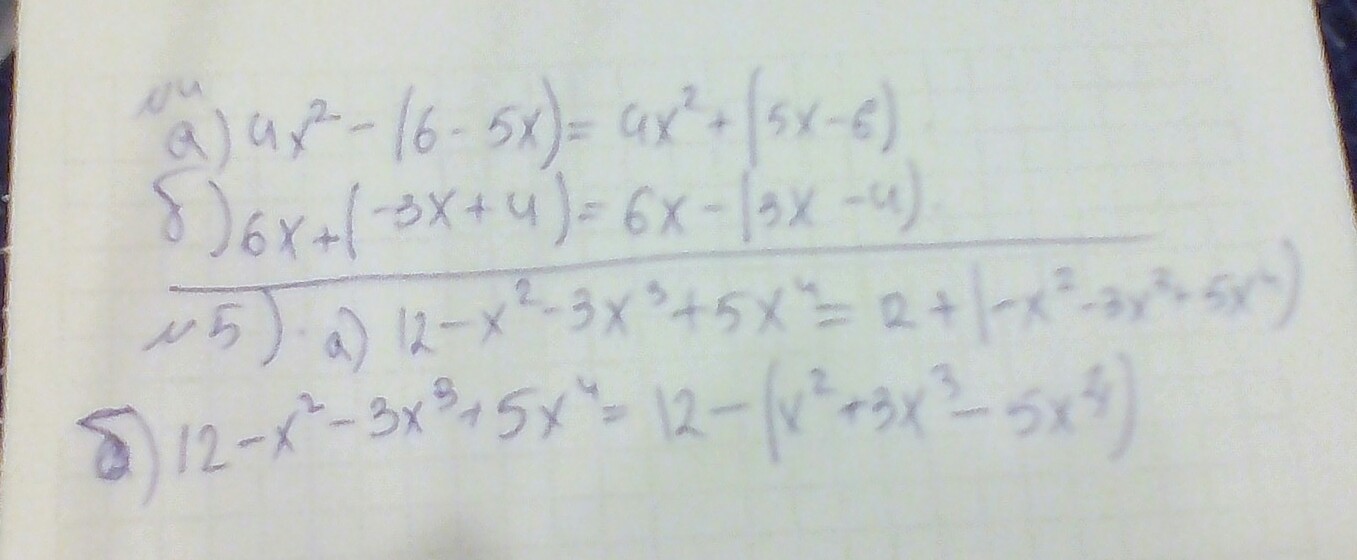 №4
а) 4x² - (6 - 5x) = 4x² + (5x - 6)
б) 6x + (-3x + 4) = 6x - (3x - 4)
№5) а) 12 - x² - 3x³ + 5x⁴ = 12 + (-x² - 3x³ + 5x⁴)
б) 12 - x² - 3x³ + 5x⁴ = 12 - (x² + 3x³ - 5x⁴)